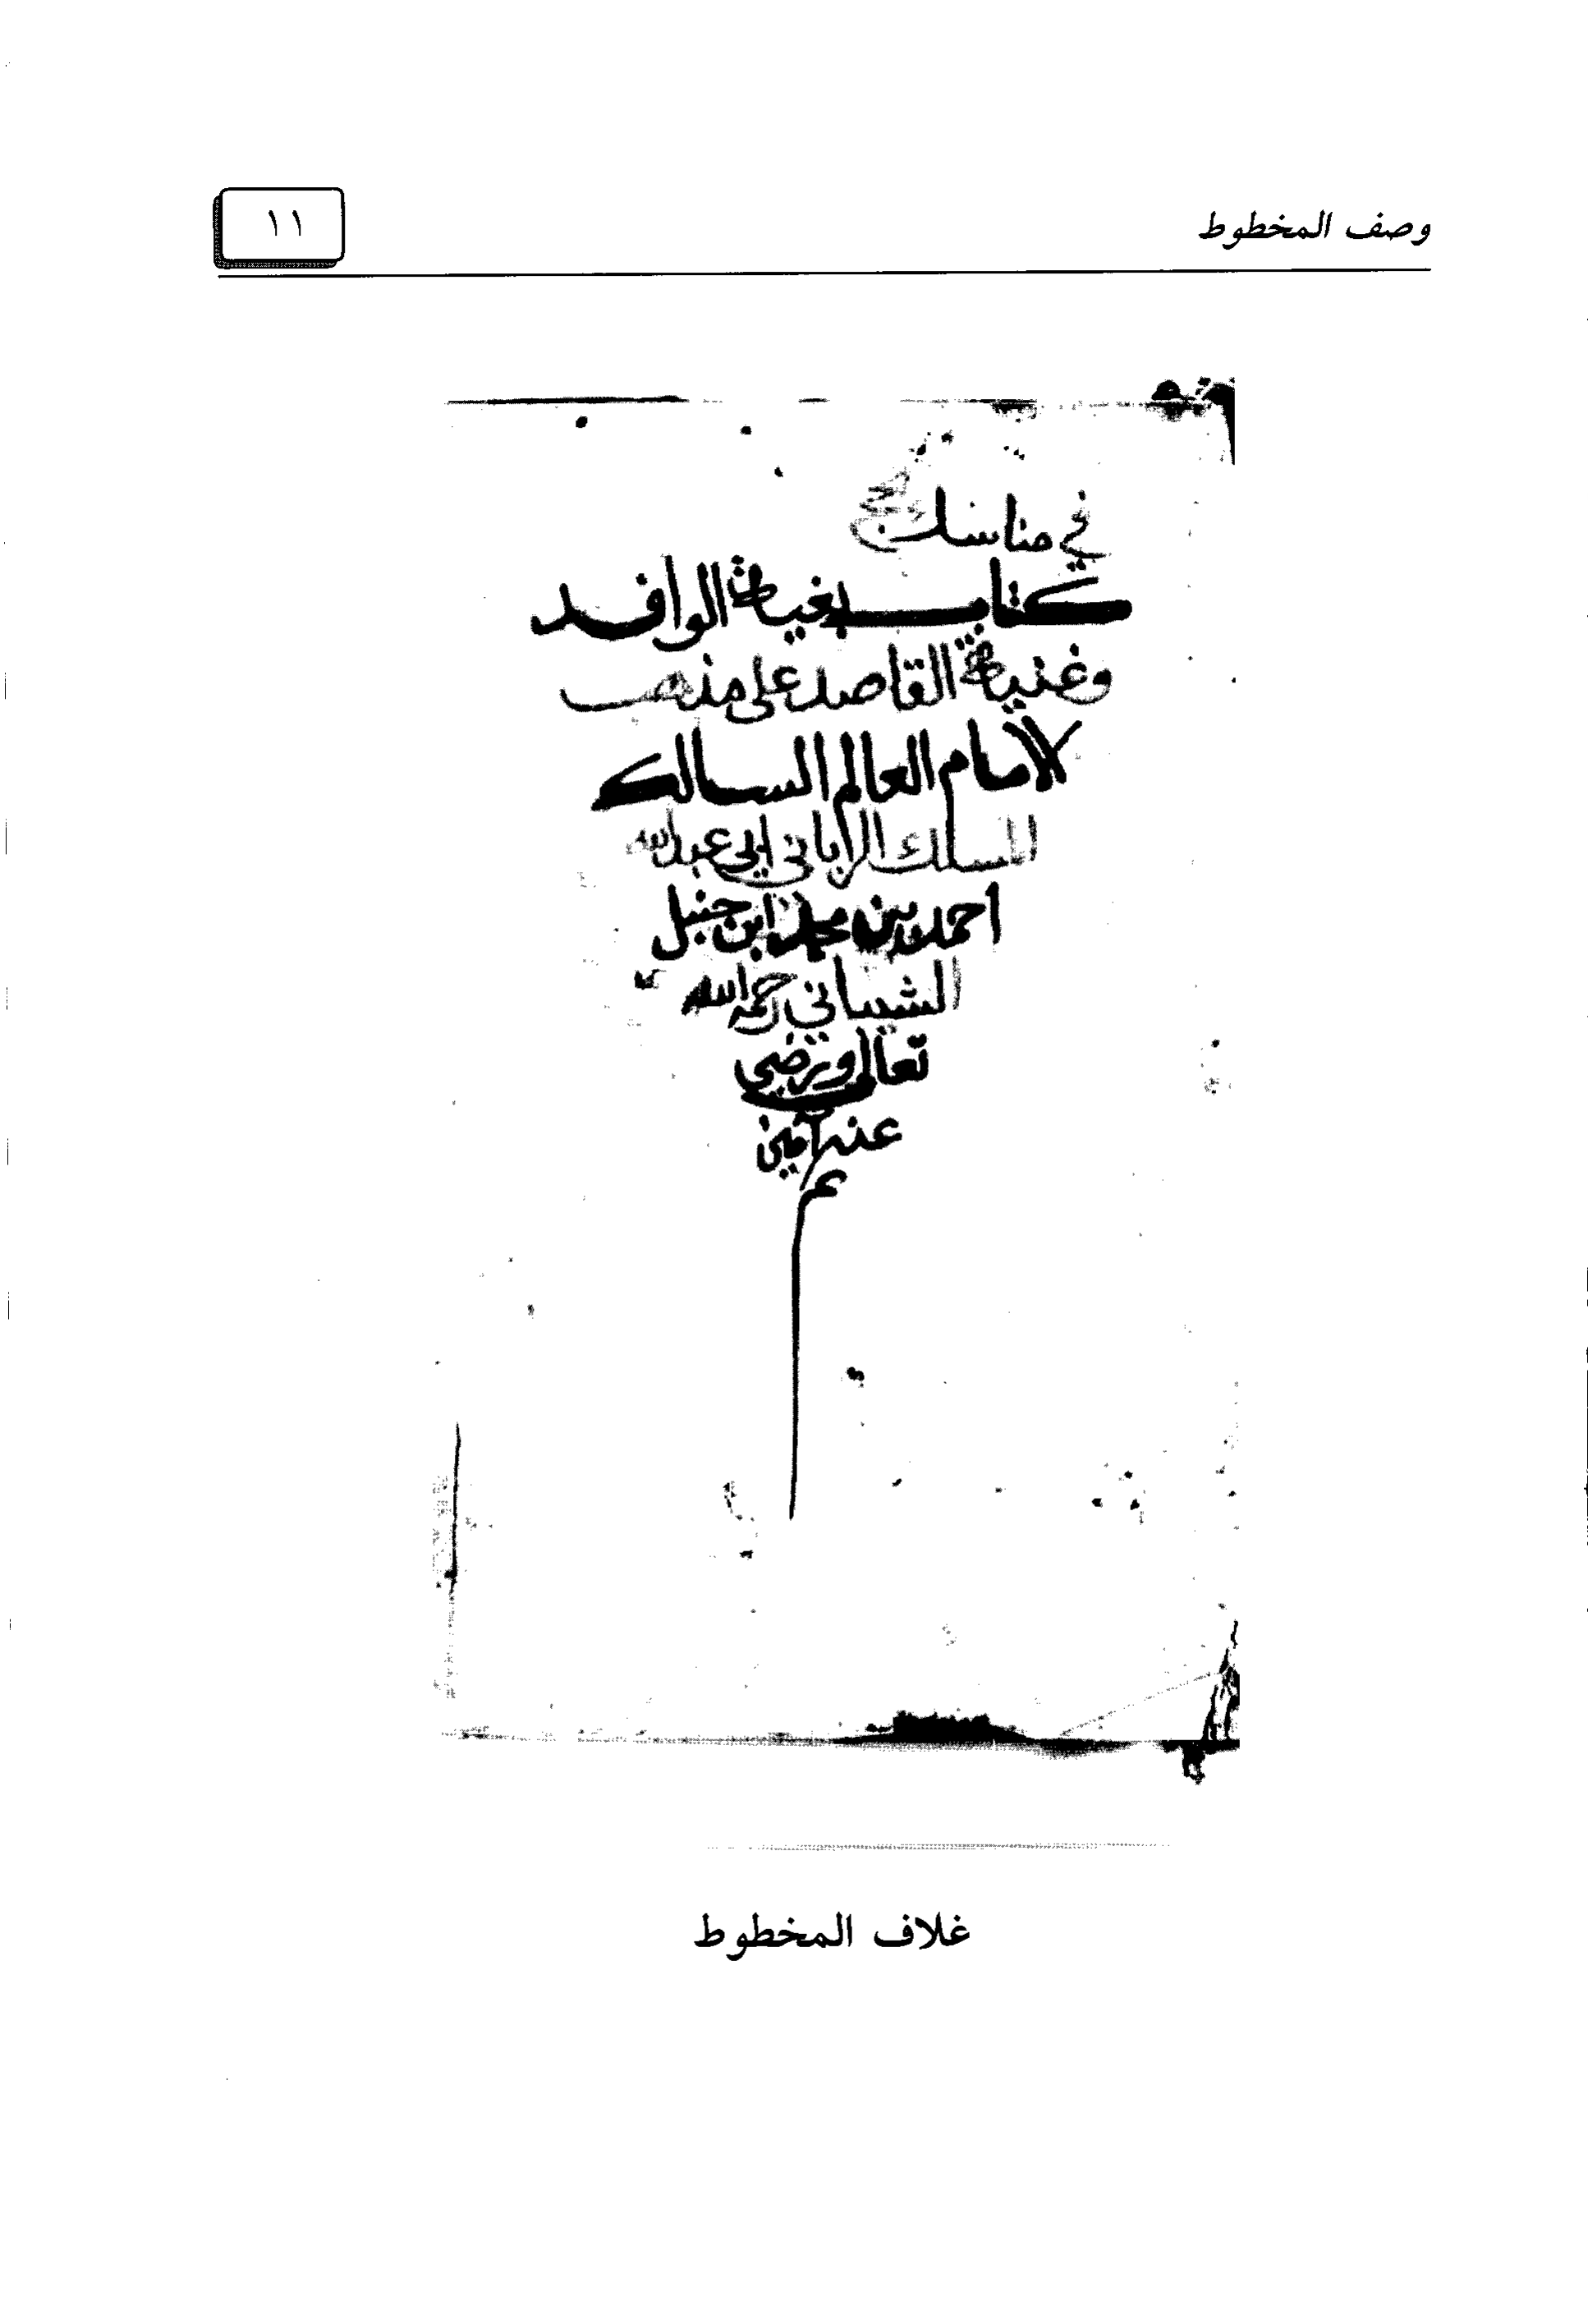 وصف المخطوط
١١
في مناسك الحج
كتاب بغية الوافد
وغنية القاصد على مذهب
الامام العالم السالك
المسلك الرباني ابي عبد الله
احمد بن محمد ابن حنبل
الشيباني رحمه الله
تعالى ورضي
عنه آمين
م
غلاف المخطوط